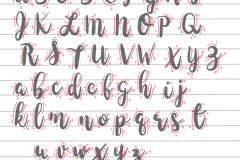 I J K L M N O P Q
R S T U V W X Y Z
a b c d e f g h i j
k l m n o p q r s t
u v w x y z